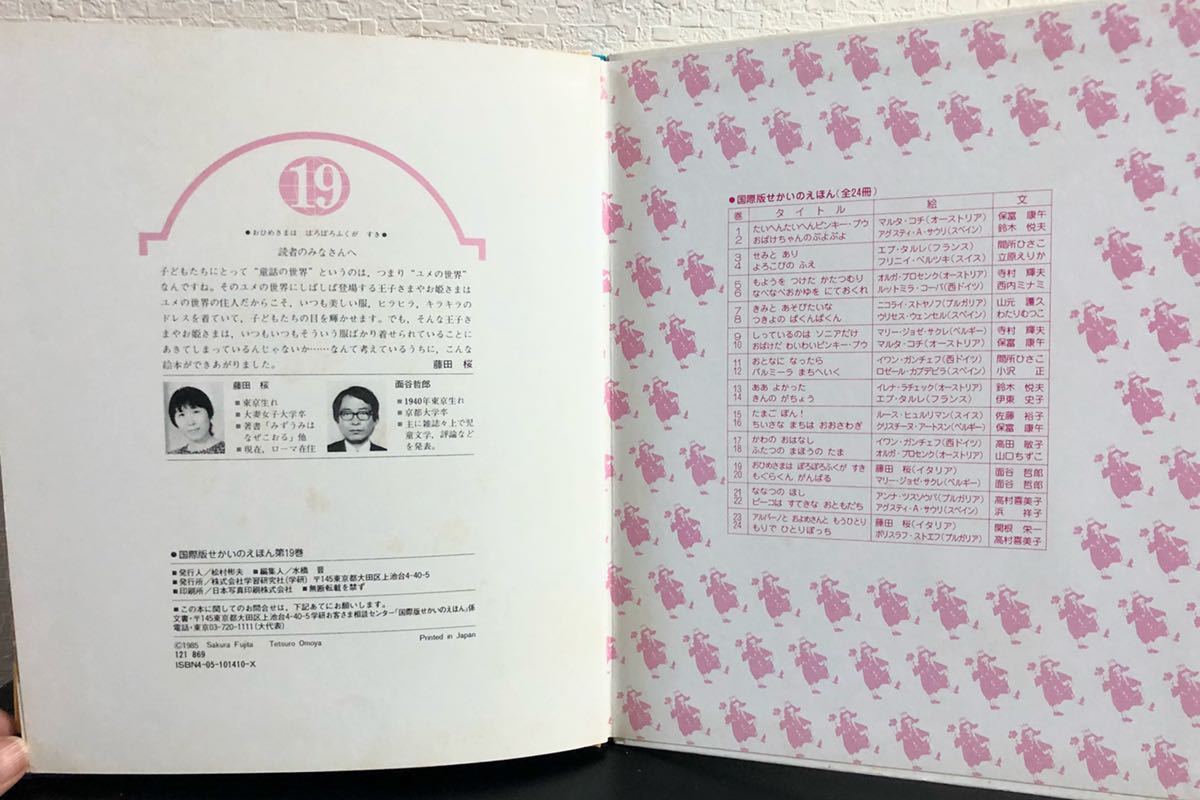 19
●おひめさまは ぼろぼろふくが すき●
読者のみなさんへ
子どもたちにとって“童話の世界”というのは，つまり“ユメの世界”
なんですね。そのユメの世界にしばしば登場する王子さまやお姫さまは
ユメの世界の住人だからこそ，いつも美しい服，ヒラヒラ，キラキラの
ドレスを着ていて，子どもたちの目を輝かせます。でも，そんな王子さ
まやお姫さまは，いつもいつもそういう服ばかり着せられていることに
あきてしまっているんじゃないか……なんて考えているうちに，こんな
絵本ができあがりました。 藤田 桜
藤田 桜
■東京生れ
■大妻女子大学卒
■著書「みずうみは
なぜこおる」他
■現在，ローマ在住
面谷哲郎
■1940年東京生れ
■京都大学卒
■主に雑誌々上で児
童文学，評論など
を発表。
●国際版せかいのえほん第19巻
■発行人／松村彬夫 ■編集人／水橋 晋
■発行所／株式会社学習研究社(学研) 〒145東京都大田区上池台4-40-5
■印刷所／日本写真印刷株式会社 ■無断転載を禁ず
■この本に関してのお問合せは，下記あてにお願いします。
文書・〒145東京都大田区上池台4-40-5学研お客さま相談センター「国際版せかいのえほん」係
電話・東京03-720-1111(大代表)
©1985 Sakura Fujita Tetsuro Omoya Printed in Japan
121 869
ISBN4-05-101410-X
●国際版せかいのえほん(全24冊)
巻 タイトル 絵 文
1 たいへんたいへんピンキー・プウ マルタ・コチ(オーストリア) 保富 康午
2 おばけちゃんのぷよぷよ アグスティ・A・サウリ(スペイン) 鈴木 悦夫
3 せみと あり エブ・タルレ(フランス) 間所ひさこ
4 よろこびの ふえ フリニイ・ベルツキ(スイス) 立原えりか
5 もようを つけた かたつむり オルガ・プロセンク(オーストリア) 寺村 輝夫
6 なべなべおかゆを にておくれ ルットミラ・コーバ(西ドイツ) 西内ミナミ
7 きみと あそびたいな ニコライ・ストヤノフ(ブルガリア) 山元 護久
8 つきよの ぱくんぱくん ウリセス・ウェンセル(スペイン) わたりむつこ
9 しっているのは ソニアだけ マリー・ジョゼ・サクレ(ベルギー) 寺村 輝夫
10 おばけだ わいわいピンキー・プウ マルタ・コチ(オーストリア) 保富 康午
11 おとなに なったら イワン・ガンチェフ(西ドイツ) 間所ひさこ
12 パルミーラ まちへいく ロゼール・カプデビラ(スペイン) 小沢 正
13 ああ よかった イレナ・ラチェック(オーストリア) 鈴木 悦夫
14 きんの がちょう エブ・タルレ(フランス) 伊東 史子
15 たまご ぽん！ ルース・ヒュルリマン(スイス) 佐藤 裕子
16 ちいさな まちは おおさわぎ クリスチーヌ・アートスン(ベルギー) 保富 康午
17 かわの おはなし イワン・ガンチェフ(西ドイツ) 高田 敏子
18 ふたつの まほうの たま オルガ・プロセンク(オーストリア) 山口ちずこ
19 おひめさまは ぼろぼろふくが すき 藤田 桜(イタリア) 面谷 哲郎
20 もぐらくん がんばる マリー・ジョゼ・サクレ(ベルギー) 面谷 哲郎
21 ななつの ほし アンナ・ツスソウバ(ブルガリア) 高村喜美子
22 ピーコは すてきな おともだち アグスティ・A・サウリ(スペイン) 浜 祥子
23 アルバーノと およめさんと もうひとり 藤田 桜(イタリア) 関根 栄一
24 もりで ひとりぼっち ボリスラフ・ストエフ(ブルガリア) 高村喜美子